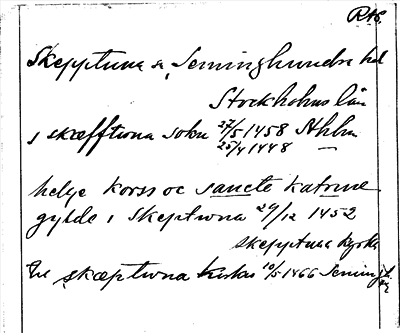 RAP.
Skepptuna sn, Seminghundra hd
Stockholms län
i skæfftwna sokn 27/5 1458 Ahlm
25/4 1448
helge korss oc sancte katrine
gylde i skeptwna 29/12 1452
skepptuna kyrka
til skæptwna kirkio 10/5 1466